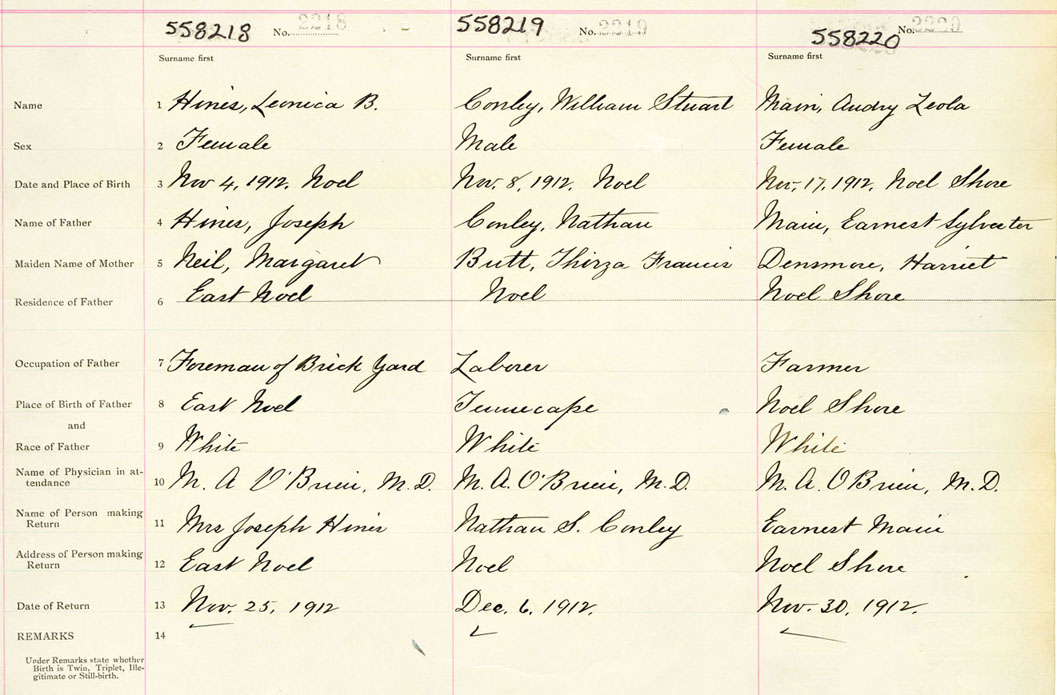 558218 No. 2218 558219 No. 2219 558220 No. 2220
Surname first Surname first Surname first
Name 1 Hines, Leonica B. Conley, William Stuart Main, Audry Leola
Sex 2 Female Male Female
Date and Place of Birth 3 Nov 4, 1912. Noel Nov. 8, 1912. Noel Nov. 17, 1912. Noel Shore
Name of Father 4 Hines, Joseph Conley, Nathan Main, Earnest Sylvester
Maiden Name of Mother 5 Neil, Margaret Butt, Thirza Francis Densmore, Harriet
Residence of Father 6 East Noel Noel Noel Shore
Occupation of Father 7 Foreman of Brick Yard Laborer Farmer
Place of Birth of Father 8 East Noel Tennecape Noel Shore
and
Race of Father 9 White White White
Name of Physician in at-
tendance 10 M. A O'Brien, M.D. M. A. O'Brien, M.D. M. A. O'Brien, M.D.
Name of Person making
Return 11 Mrs Joseph Hines Nathan S. Conley Earnest Main
Address of Person making
Return 12 East Noel Noel Noel Shore
Date of Return 13 Nov. 25, 1912 Dec. 6, 1912. Nov. 30, 1912.
REMARKS 14
Under Remarks state whether
Birth is Twin, Triplet, Ille-
gitimate or Still-birth.